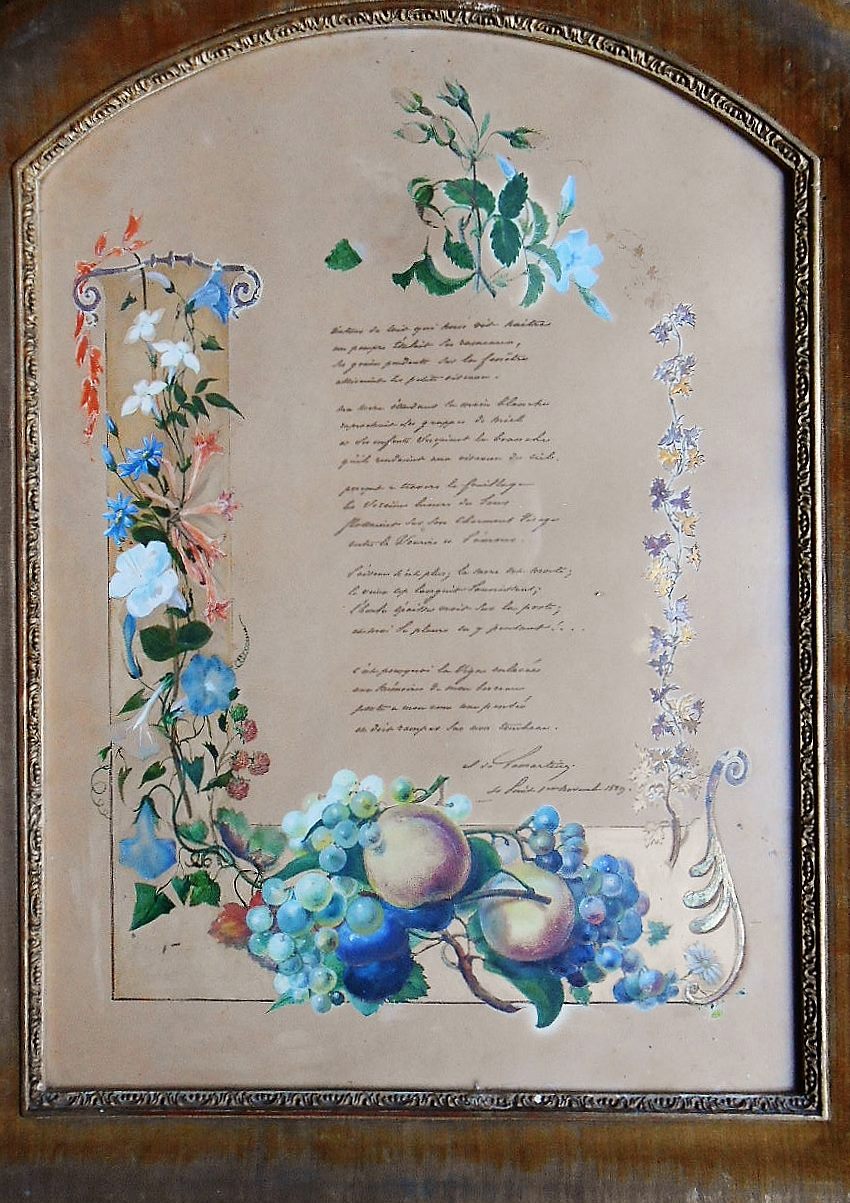 autour du toit qui nous vit naitre
un pampre étalait ses rameaux,
ses grains pendants sur la fenêtre
attiraient les petits oiseaux.
ma mere étendant sa main blanche
les grappes de miel
et ses enfants suçaient la branche
qu'ils rendaient aux oiseaux du ciel.
a travers le feuillage
les de sous
sur son charmant visage
entre la et l'amour.
l'oiseau n'est plus; la mere est morte;
le vieux cep languit jaunissant;
l'herbe épaisse croit sur la porte;
et moi je pleure en y pensant! . . .
c'est pourquoi la vigne enlacée
aux mémoires de mon berceau
porte a mon ame une pensée
et doit ramper sur mon tombeau.
de Lamartine.
St Point